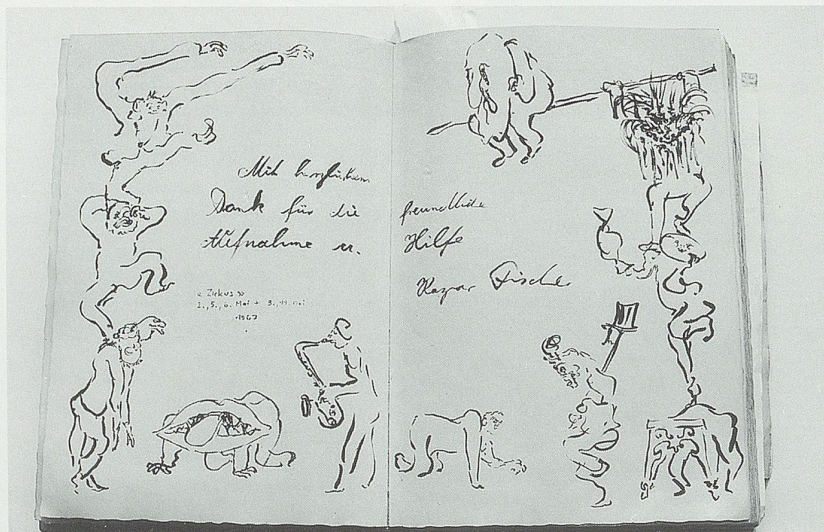 Mit herzlichem
Dank für die
Aufnahme u.
« Zirkus »
2., 5., 6. Mai + 3., 11. Mai
1967
freundliche
Hilfe
Kaspar Fischer